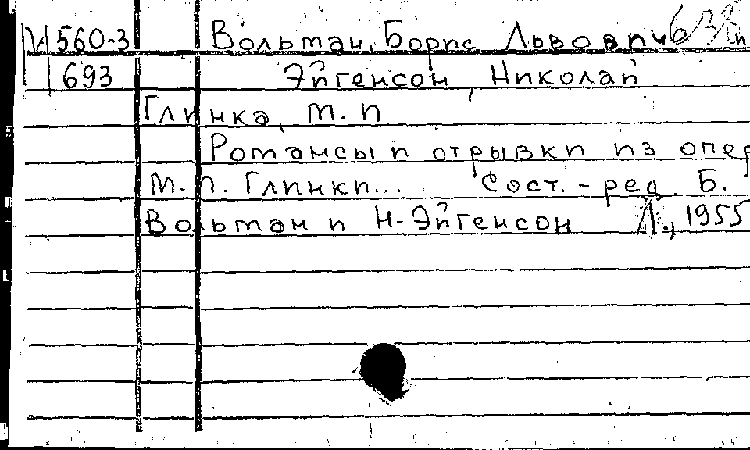 М 560-3 Вольман, Борис Львович
693 Эйгенсон, Николай
Глинка, М. И
Романсы и отрывки из опер
М. И. Глинки... Сост.-ред. Б.
Вольман и Н. Эйгенсон Л., 1955